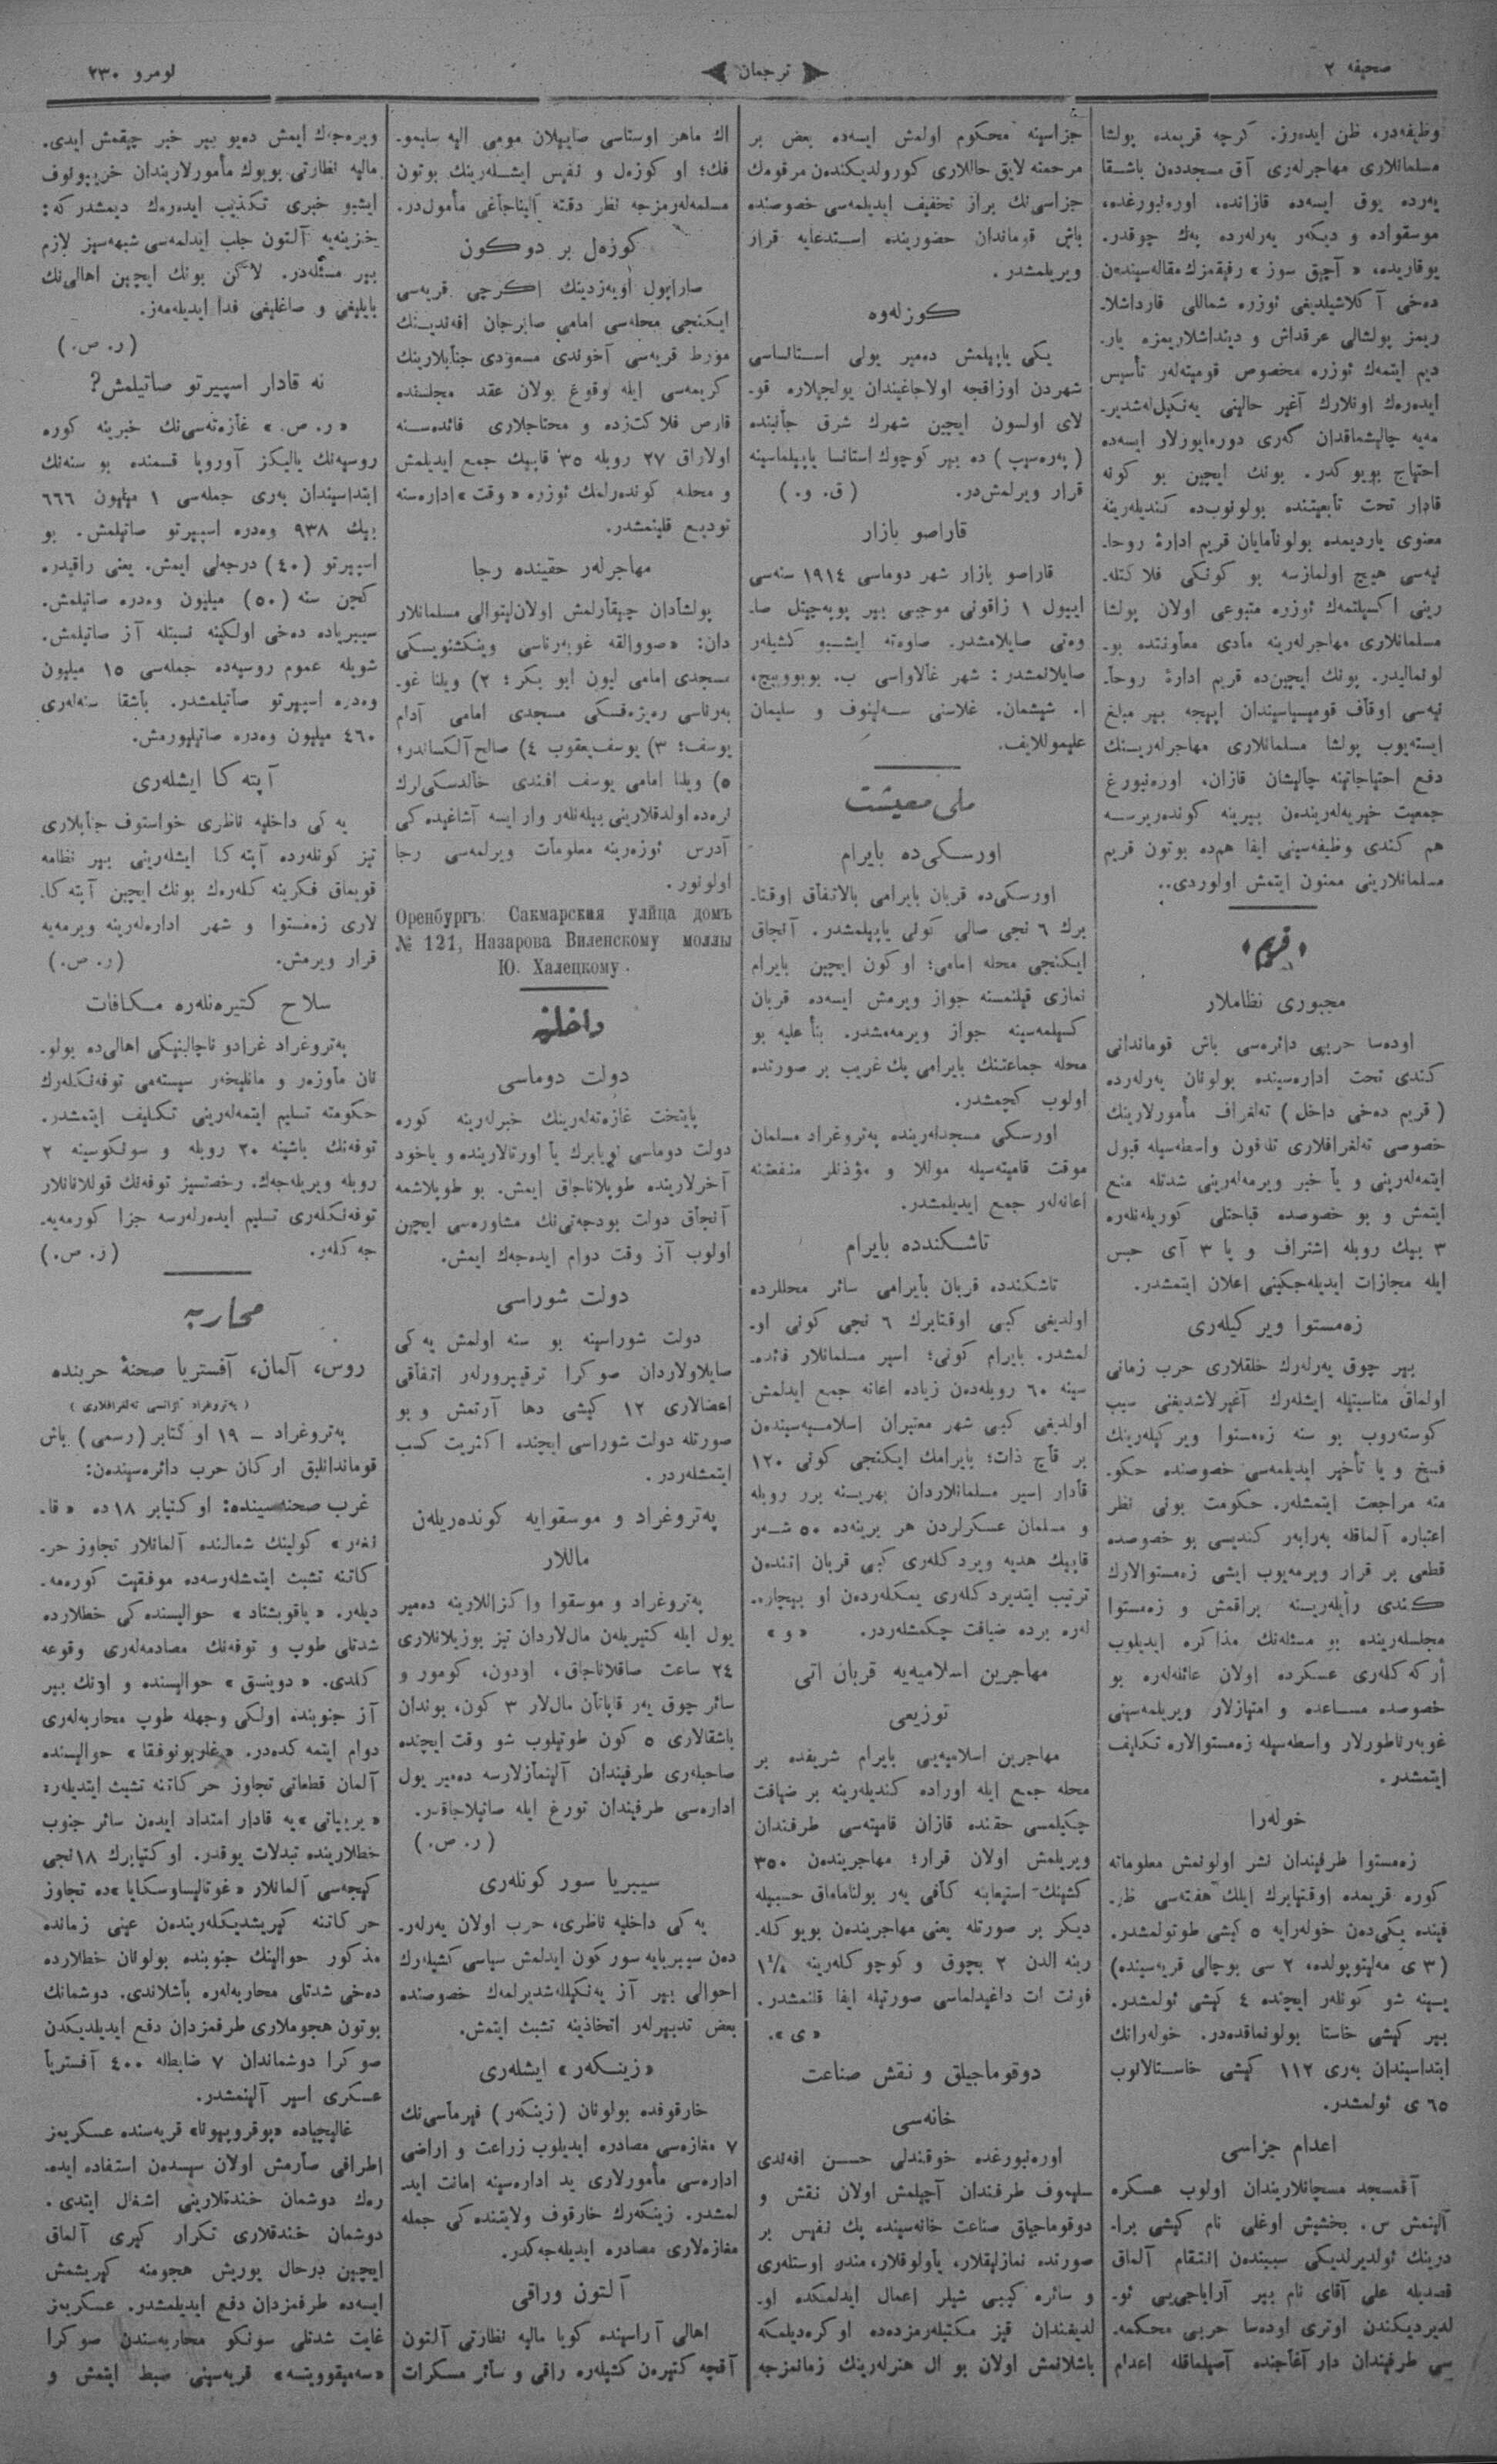 صحیفه ٢
ترجمان
نومرو ٢٣٠
وظیفه‌در، ظن ایده‌رز. كرچه قریمده پولشا
مسلمانلاری مهاجرله‌ری آق مسجددن باشقا
یه‌رده یوق ایسه‌ده قازانده، اوره‌نبورغده،
موسقواده و دیكه‌ر یه‌رله‌رده یه‌ك چوقدر.
یوقاریده، «آچق سوز» رفیقمزك مقاله‌سیندن
ده‌خی آكلاشیلدیغی ئوزره شماللی قارداشلا-
ریمز پولشالی عرقداش و دینداشلاریمزه یار-
دیم ایتمه‌ك ئوزره مخصوص قومیته‌لر تأسیس
ایده‌ره‌ك اونلارك آغیر حالینی یه‌نكیل‌له‌شدیر-
مه‌یه چالیشماقدان گه‌ری دورمایورلار ایسه‌ده
احتیاج بویوكدر. بونك ایچین بو كونه
قادار تحت تابعیتنده بولونوب‌ده كندیله‌رینه
معنوی یاردیمده بولونامایان قریم ادارهٔ روحا-
نیه‌سی هیچ اولمازسه بو كونكی فلاكتله-
رینی اكسیلتمه‌ك ئوزره متبوعی اولان پولشا
مسلمانلاری مهاجرله‌رینه مادی معاونتده بو-
لونمالیدر. بونك ایچین‌ده قریم ادارهٔ روحا-
نیه‌سی اوقاف قومیسیاسیندان ایپجه بیر مبلغ
ایسته‌یوب پولشا مسلمانلاری مهاجرله‌رینك
دفع احتیاجاتینه چالیشان قازان، اوره‌نبورغ
جمعیت خیریه‌له‌ریندن بیرینه كونده‌ریرسه
هم كندی وظیفه‌سینی ایفا هم‌ده بوتون قریم
مسلمانلارینی ممنون ایتمش اولوردی..
قریم
مجبوری نظاملار
اوده‌سا حربی دائره‌سی باش قوماندانی
كندی تحت اداره‌سینده بولونان یه‌رله‌رده
(قریم ده‌خی داخل) ته‌لغراف مأمورلارینك
خصوصی ته‌لغرافلاری تله‌فون واسطه‌سیله قبول
ایتمه‌له‌رینی و یا خبر ویرمه‌له‌رینی شدتله منع
ایتمش و بو خصوصده قباحتلی كوریله‌نله‌ره
٣ بیك روبله اشتراف و یا ٣ آی حبس
ایله مجازات ایدیله‌جكینی اعلان ایتمشدر.
زه‌مستوا ویركیله‌ری
بیر چوق یه‌رله‌رك خلقلاری حرب زمانی
اولماق مناسبتیله ایشله‌رك آغیرلاشدیغنی سبب
كوسته‌روب بو سنه زه‌مستوا ویركیله‌رینك
فسخ و یا تأخیر ایدیلمه‌سی خصوصنده حكو-
مته مراجعت ایتمشله‌ر. حكومت بونی نظر
اعتباره آلماقله به‌رابه‌ر كندیسی بو خصوصده
قطعی بر قرار ویرمه‌یوب ایشی زه‌مستوالارك
كندی رأیله‌رینه براقمش و زه‌مستوا
مجلسله‌رینده بو مسئله‌نك مذاكره ایدیلوب
أركه‌كله‌ری عسكرده اولان عائله‌له‌ره بو
خصوصده مساعده و امتیازلار ویریلمه‌سینی
غوبه‌رناطورلار واسطه‌سیله زه‌مستوالاره تكلیف
ایتمشدر.
خوله‌را
زه‌مستوا طرفیندان نشر اولونمش معلوماته
كوره قریمده اوقتیابرك ایلك هفته‌سی ظر-
فینده یكی‌دن خوله‌رایه ٥ كیشی طوتولمشدر.
(٣ ی مه‌لیتوپولده، ٢ سی بوچالی قریه‌سینده)
یینه شو كونله‌ر ایچنده ٤ كیشی ئولمشدر.
بیر كیشی خاستا بولونماقده‌در. خوله‌رانك
ابتداسیندان به‌ری ١١٢ كیشی خاستالانوب
٦٥ ی ئولمشدر.
اعدام جزاسی
آقمسجد مسچانلاریندان اولوب عسكره
آلینمش س. بخشیش اوغلی نام كیشی برا-
درینك ئولدیرلدیكی سببندن انتقام آلماق
قصدیله علی آقای نام بیر آراباجی‌یی ئو-
لدیردیكندن اوتری اوده‌سا حربی محكمه-
سی طرفیندان دار آغاجنده آصیلماقله اعدام
جزاسینه محكوم اولمش ایسه‌ده بعض بر
مرحمته لایق حاللاری كورولدیكندن مرقومك
جزاسی‌نك براز تخفیف ایدیلمه‌سی خصوصنده
باش قوماندان حضورینده استدعایه قرار
ویریلمشدر.
كوزله‌وه
یكی یاپیلمش ده‌میر یولی استانساسی
شهردن اوزاقجه اولاجاغیندان یولجیلاره قو-
لای اولسون ایچین شهرك شرق جانبنده
(په‌ره‌سیپ) ده بیر كوچوك استانسا یاپیلماسینه
قرار ویرلمش‌در. (ق. و.)
قاراصو بازار
قاراصو بازار شهر دوماسی ١٩١٤ سنه‌سی
اییول ١ زاقونی موجبی بیر پوپه‌چیتل صا-
وه‌تی صایلامشدر. صاوه‌ته ایشبو كشیله‌ر
صایلانمشدر: شهر غالاواسی ب. بوبوویچ،
ا. شیشمان. غلاسنی سه‌لینوف و سلیمان
علیموللایف.
ملی معیشت
اورسكی‌ده بایرام
اورسكی‌ده قربان بایرامی بالاتفاق اوقتا-
برك ٦ نجی صالی كونی یاپیلمشدر. آنجاق
ایكنجی محله امامی؛ او كون ایچین بایرام
نمازی قیلنمسنه جواز ویرمش ایسه‌ده قربان
كسیلمه‌سینه جواز ویرمه‌مشدر. بنأ علیه بو
محله جماعتنك بایرامی پك غریب بر صورتده
اولوب كچمشدر.
اورسكی مسجدله‌رینده په‌تروغراد مسلمان
موقت قامیته‌سیله موللا و مؤذنلر منفعتنه
اعانه‌له‌ر جمع ایدیلمشدر.
تاشكندده بایرام
تاشكندده قربان بایرامی سائر محللرده
اولدیغی كبی اوقتابرك ٦ نجی كونی او-
لمشدر. بایرام كونی؛ اسیر مسلمانلار فائده-
سینه ٦٠ روبله‌دن زیاده اعانه جمع ایدلمش
اولدیغی كبی شهر معتبران اسلامیه‌سیندن
بر قاچ ذات؛ بایرامك ایكنجی كونی ١٢٠
قادار اسیر مسلمانلاردان بهرینه برر روبله
و مسلمان عسكرلردن هر برینه‌ده ٥٠ شه‌ر
قاپیك هدیه ویردكله‌ری كبی قربان اتندن
ترتیب ایتدیردكله‌ری یمكله‌ردن او بیچاره-
له‌ره برده ضیافت چكمشله‌ردر. «و»
مهاجرین اسلامیه‌یه قربان اتی
توزیعی
مهاجرین اسلامیه‌یی بایرام شریفده بر
محله جمع ایله اوراده كندیله‌رینه بر ضیافت
چكیلمسی حقنده قازان قامیته‌سی طرفندان
ویریلمش اولان قرار؛ مهاجریندن ٣٥٠
كشینك استیعابه كافی یه‌ر بولناماماق حسبیله
دیكر بر صورتله یعنی مهاجریندن بویوكله-
رینه الدن ٢ بچوق و كوچوكله‌رینه ١¼
فونت ات داغیدلماسی صورتیله ایفا قلنمشدر.
«ی».
دوقوماجیلق و نقش صناعت
خانه‌سی
اوره‌نبورغده خوقندلی حسن افه‌ندی
سلیموف طرفندان آچیلمش اولان نقش و
دوقوماجیلق صناعت خانه‌سینده پك نفیس بر
صورتده نمازلیقلار، یاولوقلار، مندر اوستله‌ری
و سائره كیبی شیلر اعمال ایدلمكده او-
لدیغندان قیز مكتبله‌رمزده‌ده اوكره‌دیلمكه
باشلانمش اولان بو ال هنرله‌رینك زمانمزجه
اك ماهر اوستاسی صاییلان مومی الیه سلیمو-
فك؛ او كوزه‌ل و نفیس ایشله‌رینك بوتون
مسلمه‌له‌رمزجه نظر دقته آلیناجاغی مأمول‌در.
كوزه‌ل بر دوكون
صاراپول اویه‌زدینك اكرجی قریه‌سی
ایكنجی محله‌سی امامی صابرجان افه‌ندینك
مورط قریه‌سی آخوندی مسعودی جنابلارینك
كریمه‌سی ایله وقوع بولان عقد مجلسنده
قارص فلاكت‌زده و محتاجلاری فائده‌سنه
اولاراق ٢٧ روبله ٣٥ قاپیك جمع ایدیلمش
و محله كونده‌رلمك ئوزره «وقت» اداره‌سنه
تودیع قلینمشدر.
مهاجرله‌ر حقینده رجا
پولشادان چیقارلمش اولان لیتوالی مسلمانلار
دان: «صووالقه غوبه‌رناسی وینكشنویسكی
مسجدی امامی لیون ابو بكر؛ ٢) ویلنا غو-
به‌رناسی ره‌یزه‌فسكی مسجدی امامی آدام
یوسف؛ ٣) یوسف یعقوب ٤) صالح آلكساندر؛
٥) ویلنا امامی یوسف افندی خالدسكی‌لرك
نره‌ده اولدقلارینی بیله‌نله‌ر وار ایسه آشاغیده‌كی
آدرس ئوزه‌رینه معلومات ویرلمه‌سی رجا
اولونور.
Оренбургъ: Сакмарская улица домъ
№ 121, Назарова Виленскому моллы
Ю. Халецкому.
داخلیه
دولت دوماسی
پایتخت غازه‌ته‌له‌رینك خبرله‌رینه كوره
دولت دوماسی نویابرك یا اورتالارینده و یاخود
آخرلارینده طوپلاناجاق ایمش. بو طوپلاشمه
آنجاق دولت بودجه‌تی‌نك مشاوره‌سی ایچین
اولوب آز وقت دوام ایده‌جه‌ك ایمش.
دولت شوراسی
دولت شوراسینه بو سنه اولمش یه‌كی
صایلاولاردان صوكرا ترقیپرورله‌ر اتفاقی
اعضالاری ١٢ كیشی دها آرتمش و بو
صورتله دولت شوراسی ایچنده اكثریت كسب
ایتمشله‌ردر.
په‌تروغراد و موسقوایه كونده‌ریلن
ماللار
په‌تروغراد و موسقوا واكزاللارینه ده‌میر
یول ایله كتیریلن مال‌لاردان تیز بوزیلانلاری
٢٤ ساعت صاقلاناجاق، اودون، كومور و
سائر چوق یه‌ر قاپانان مال‌لار ٣ كون، بوندان
باشقالاری ٥ كون طوتیلوب شو وقت ایچنده
صاحبله‌ری طرفیندان آلینمازلارسه ده‌میر یول
اداره‌سی طرفیندان تورغ ایله صاتیلاجاقدر.
(ر. ص.)
سیبریا سور كونله‌ری
یه‌كی داخلیه ناظری، حرب اولان یه‌رله‌ر-
دن سیبریایه سور كون ایدلمش سیاسی كشیله‌رك
احوالی بیر آز یه‌نكیللشدیرلمه‌ك خصوصنده
بعض تدبیرله‌ر اتخاذینه تشبث ایتمش.
«زینكه‌ر» ایشله‌ری
خارقوفده بولونان (زینكه‌ر) فیرماسی‌نك
٧ مغازه‌سی مصادره ایدیلوب زراعت و اراضی
اداره‌سی مأمورلاری ید اداره‌سینه امانت اید-
لمشدر. زینكه‌رك خارقوف ولایتنده‌كی جمله
مغازه‌لاری مصادره ایدیله‌جه‌كدر.
آلتون وراقی
اهالی آراسینده كویا مالیه نظارتی آلتون
آقچه كتیرن كشیله‌ره راقی و سائر مسكرات
ویره‌جه‌ك ایمش ده‌یو بیر خبر چیقمش ایدی.
مالیه نظارتی بویوك مأمورلاریندان خریپونوف
ایشبو خبری تكذیب ایده‌ره‌ك دیمشدر كه:
خزینه‌یه آلتون جلب ایدلمه‌سی شبهه‌سیز لازم
بیر مسئله‌در. لاكن بونك ایچین اهالی‌نك
بایلیغی و صاغلیغی فدا ایدیله‌مه‌ز.
(ر. ص.)
نه قادار اسپیرتو صاتیلمش؟
«ر. ص.» غازه‌ته‌سی‌نك خبرینه كوره
روسیه‌نك یالیكز آوروپا قسمنده بو سنه‌نك
ابتداسیندان به‌ری جمله‌سی ١ میلیون ٦٦٦
بیك ٩٣٨ وه‌دره اسپیرتو صاتیلمش. بو
اسپیرتو (٤٠) درجه‌لی ایمش. یعنی راقیدر.
كچن سنه (٥٠) میلیون وه‌دره صاتیلمش.
سیبریاده ده‌خی اولكینه نسبتله آز صاتیلمش.
شویله عموم روسیه‌ده جمله‌سی ١٥ میلیون
وه‌دره اسپیرتو صاتیلمشدر. باشقا سنه‌له‌ری
٤٦٠ میلیون وه‌دره صاتیلیورمش.
آپته‌كا ایشله‌ری
یه‌كی داخلیه ناظری خواستوف جنابلاری
تیز كونله‌رده آپته‌كا ایشله‌رینی بیر نظامه
قویماق فكرینه كله‌ره‌ك بونك ایچین آپته‌كا-
لاری زه‌مستوا و شهر اداره‌له‌رینه ویرمه‌یه
قرار ویرمش. (ر. ص.)
سلاح كتیره‌نله‌ره مكافات
په‌تروغراد غرادوناچالنیكی اهالی‌ده بولو-
نان ماوزه‌ر و مانلیخه‌ر سیسته‌می توفه‌نكله‌رك
حكومته تسلیم ایتمه‌له‌رینی تكلیف ایتمشدر.
توفه‌نك باشینه ٢٠ روبله و سونكوسینه ٢
روبله ویریله‌جه‌ك. رخصتسیز توفه‌نك قوللانانلار
توفه‌نكله‌ری تسلیم ایده‌رله‌رسه جزا كورمه‌یه-
جه‌كله‌ر. (ر. ص.)
محاربه
روس، آلمان، آفستریا صحنهٔ حربنده
(په‌تروغراد آژانسی ته‌لغرافلاری)
په‌تروغراد – ١٩ اوكتابر (رسمی) باش
قوماندانلیق اركان حرب دائره‌سیندن:
غرب صحنه‌سینده: اوكتیابر ١٨ده «قا-
نغه‌ر» كولینك شمالنده آلمانلار تجاوز حر-
كاتنه تشبث ایتمشله‌رسه‌ده موفقیت كورمه-
دیله‌ر. «یاقوبشتاد» حوالیسنده‌كی خطلارده
شدتلی طوپ و توفه‌نك مصادمه‌له‌ری وقوعه
كلدی. «دوینسق» حوالیسنده و اونك بیر
آز جنوبنده اولكی وجهله طوپ محاربه‌له‌ری
دوام ایتمه‌كده‌در. «غاربونوفقا» حوالیسنده
آلمان قطعاتی تجاوز حركاتنه تشبث ایتدیله‌ر؛
«پریپاتی»یه قادار امتداد ایدن سائر جنوب
خطلارینده تبدلات یوقدر. اوكتیابرك ١٨نجی
كیجه‌سی آلمانلار «غوتالیساوسكایا»ده تجاوز
حركاتنه كیریشدیكله‌ریندن عینی زمانده
مذكور حوالینك جنوبنده بولونان خطلارده
ده‌خی شدتلی محاربه‌له‌ره باشلاندی. دوشمانك
بوتون هجوملاری طرفمزدان دفع ایدیلدیكدن
صوكرا دوشماندان ٧ ضابطله ٤٠٠ آفستریا
عسكری اسیر آلینمشدر.
غالیچیاده «بوقروپیونا» قریه‌سنده عسكریمز
اطرافی صارمش اولان سیسدن استفاده ایده-
ره‌ك دوشمان خندقلارینی اشغال ایتدی.
دوشمان خندقلاری تكرار كیری آلماق
ایچین درحال یوریش هجومنه كیریشمش
ایسه‌ده طرفمزدان دفع ایدیلمشدر. عسكریمز
غایت شدتلی سونكو محاربه‌سندن صوكرا
«سه‌میقوویتسه» قریه‌سینی ضبط ایتمش و